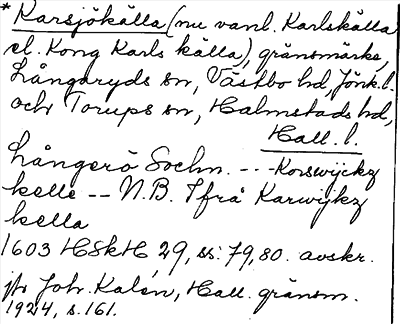 * Karsjökälla (nu vanl. Karlskälla
el. Kong Karls källa), gränsmärke,
Långaryds sn, Västbo hd, Jönk. l.
och Torups sn, Halmstads hd,
Hall. l.
Långerö Sochn. --- Korswijckz
kelle -- N.B. Ifrå Karwijkz
kella
1603 HSkH, 29, ss: 79, 80. avskr.
jfr Joh. Kalén, Hall. gränsm.
1924, s. 161.